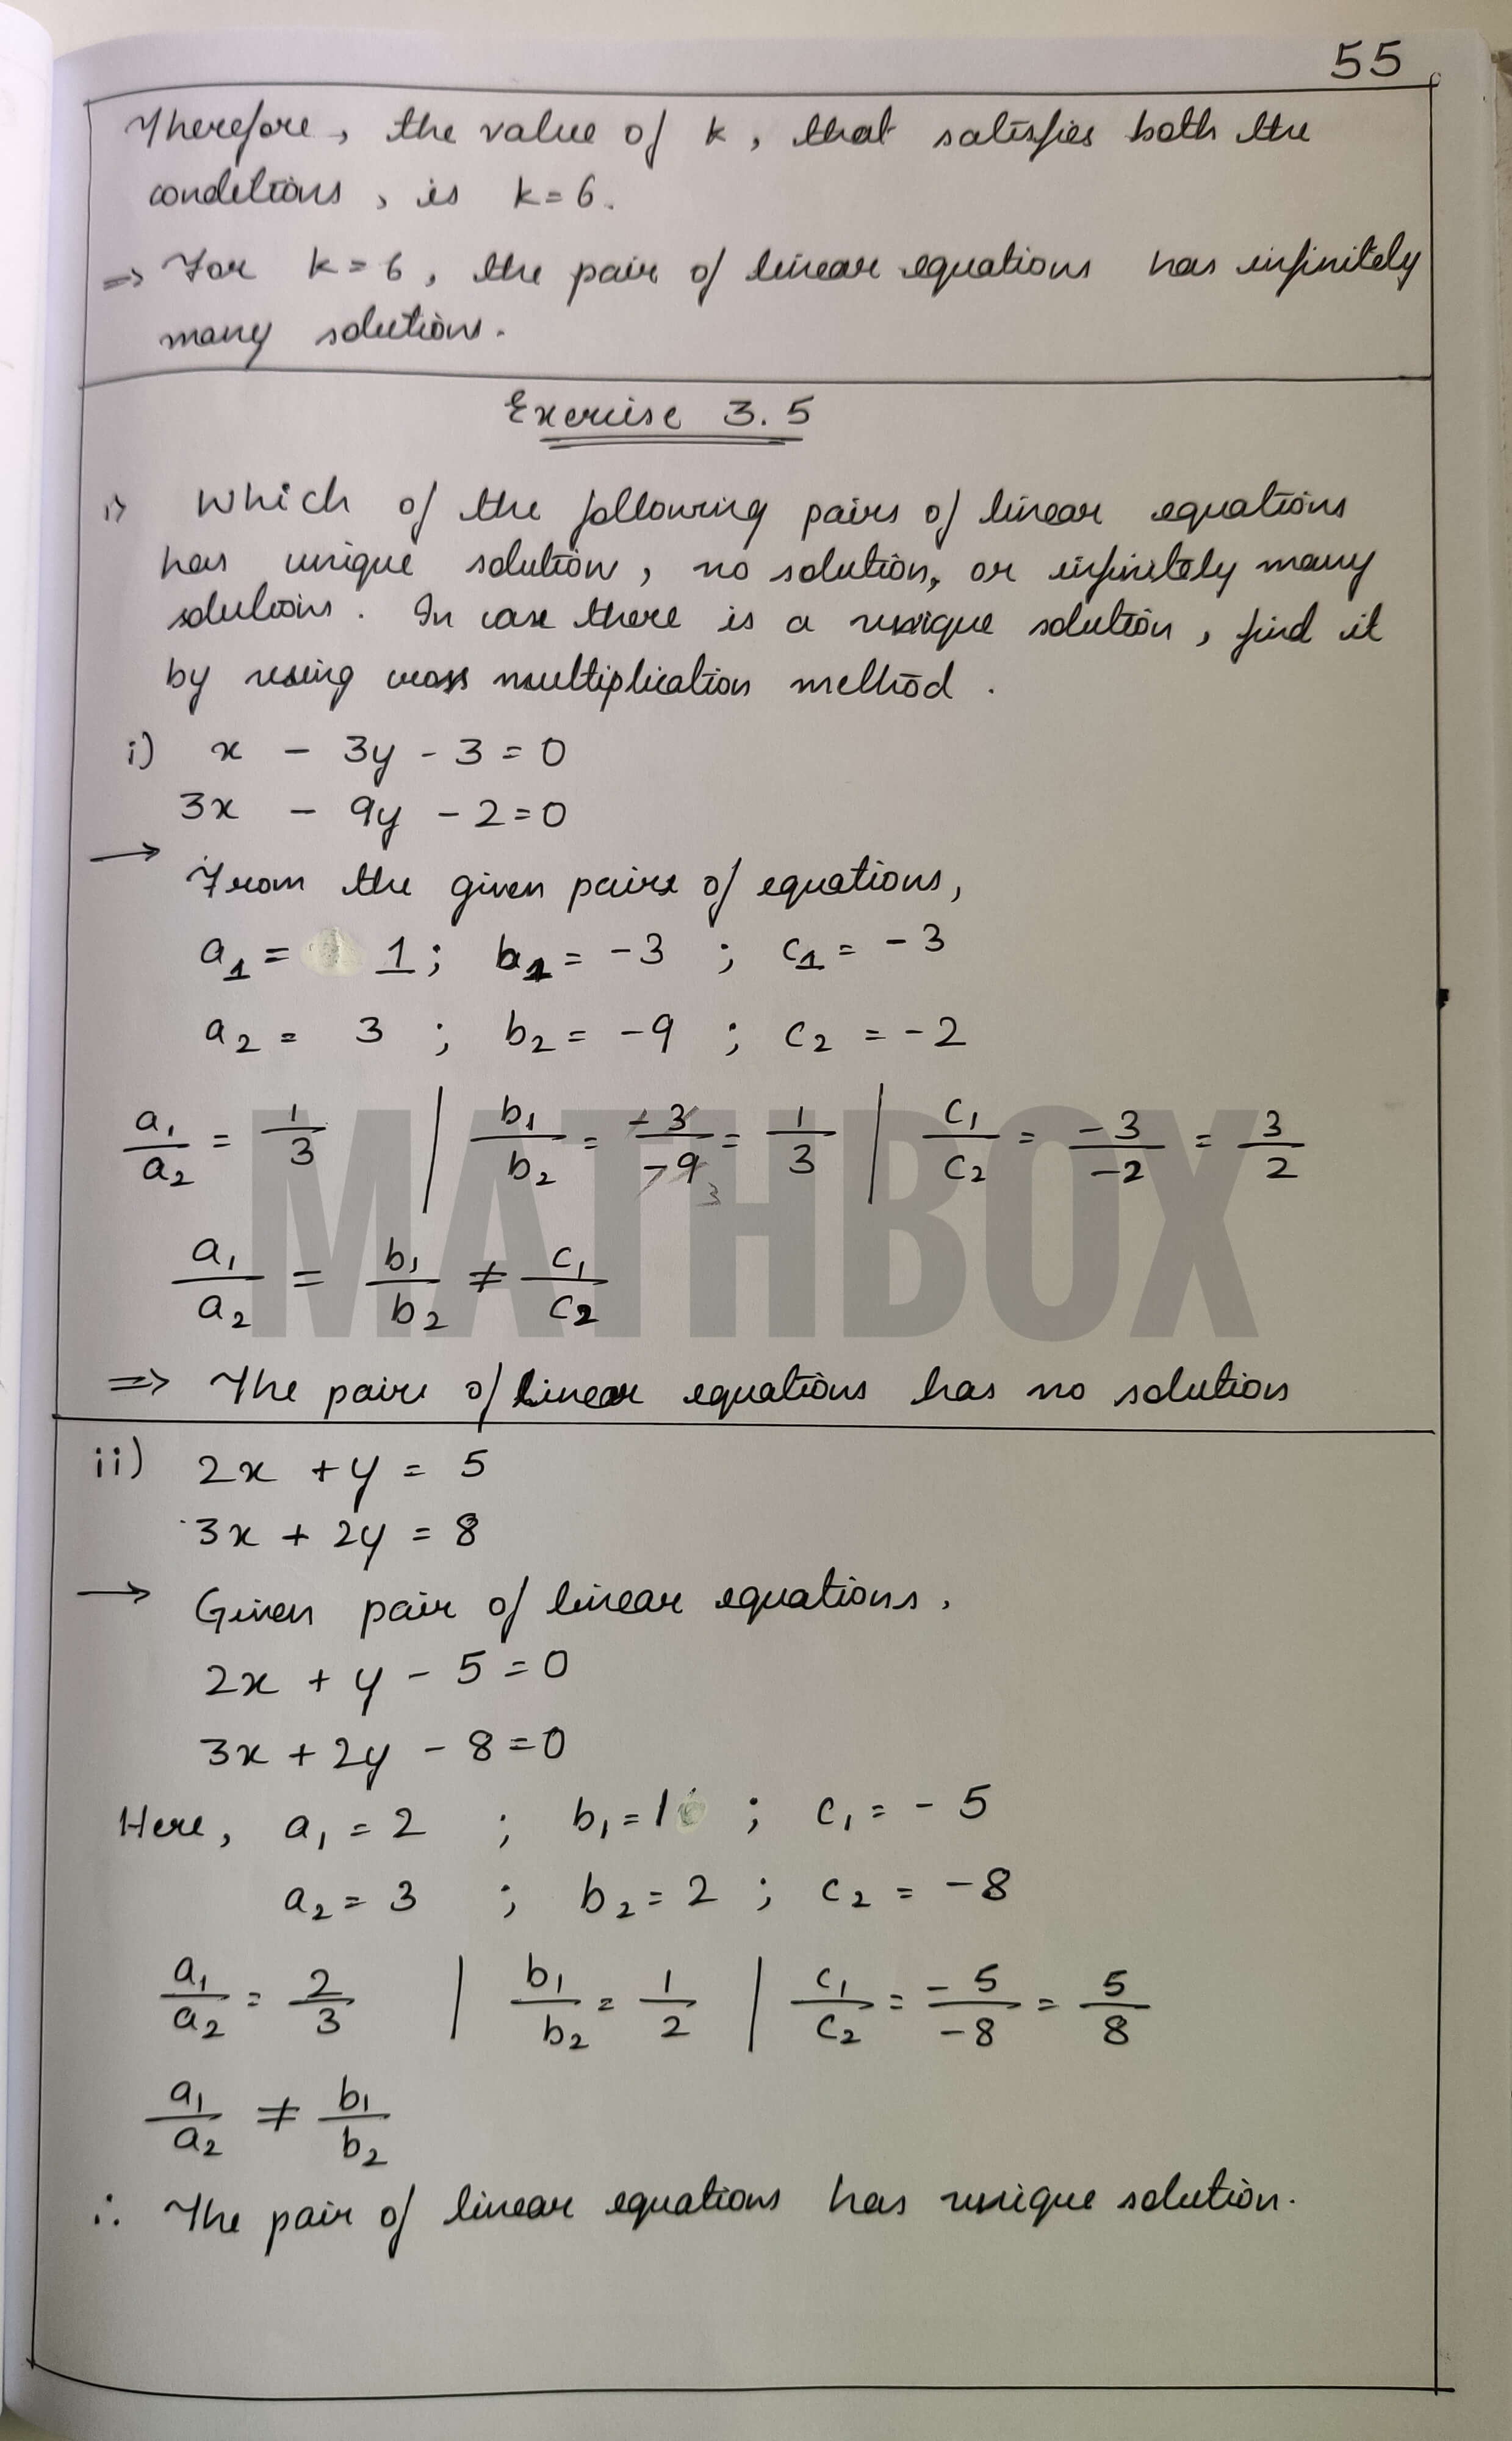 55
Therefore, the value of k, that satisfies both the
conditions, is k = 6.
=> For k = 6, the pair of linear equations has infinitely
many solutions.
Exercise 3.5
1) Which of the following pairs of linear equations
has unique solution, no solution, or infinitely many
solutions. In case there is a unique solution, find it
by using cross multiplication method.
i) x - 3y - 3 = 0
3x - 9y - 2 = 0
→ From the given pairs of equations,
a₁ = 1 ; b₁ = -3 ; c₁ = -3
a₂ = 3 ; b₂ = -9 ; c₂ = -2
a₁/a₂ = 1/3 | b₁/b₂ = -3/-9 3 = 1/3 | c₁/c₂ = -3/-2 = 3/2
MATHBOX
a₁/a₂ = b₁/b₂ ≠ c₁/c₂
=> The pair of linear equations has no solution
ii) 2x + y = 5
3x + 2y = 8
→ Given pair of linear equations,
2x + y - 5 = 0
3x + 2y - 8 = 0
Here, a₁ = 2 ; b₁ = 1 ; c₁ = -5
a₂ = 3 ; b₂ = 2 ; c₂ = -8
a₁/a₂ = 2/3 | b₁/b₂ = 1/2 | c₁/c₂ = -5/-8 = 5/8
a₁/a₂ ≠ b₁/b₂
∴ The pair of linear equations has unique solution.